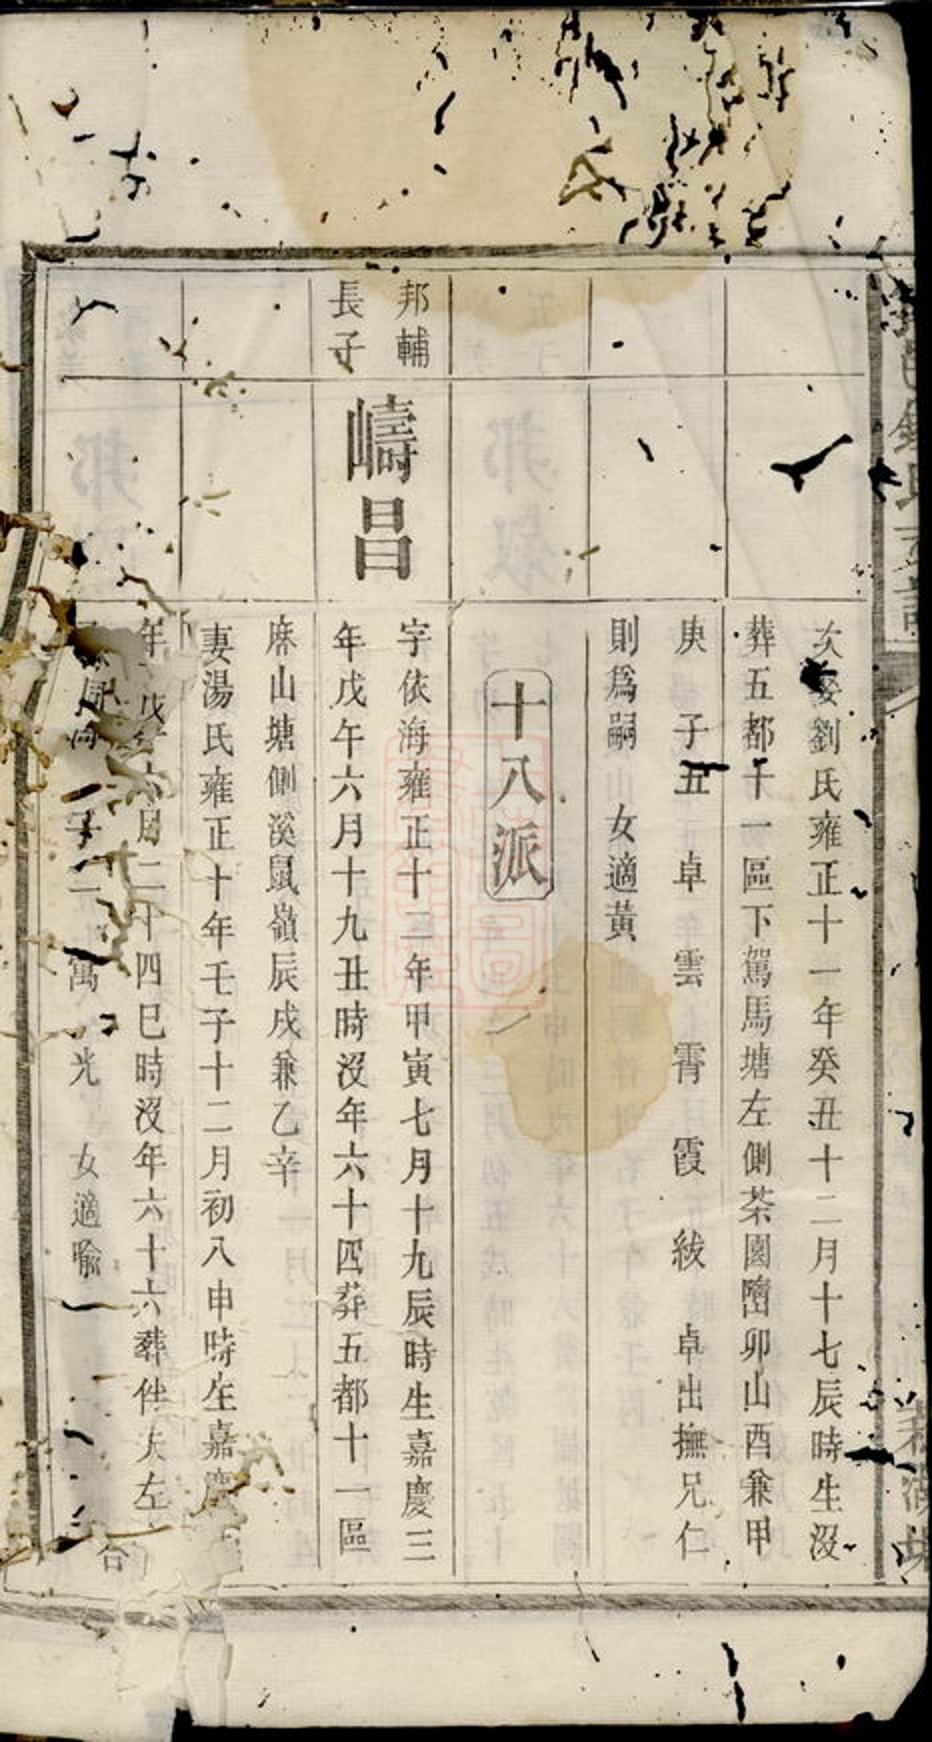 次娶劉氏雍正十一年癸丑十二月十七辰時生沒
葬五都十一區下駕馬塘左側茶園嶝卯山酉兼甲
庚 子五 卓 雲 霄 霞 紱 卓出撫兄仁
則爲嗣 女適黃
十八派
邦輔
長子
嶹昌
字依海雍正十二年甲寅七月十九辰時生嘉慶三
年戊午六月十九丑時沒年六十四葬五都十一區
麻山塘側溪鼠嶺辰戌兼乙辛
妻湯氏雍正十年壬子十二月初八申時生嘉慶
年戊 六月二十四巳時沒年六十六葬伴夫左
子二 萬 光 女適喩